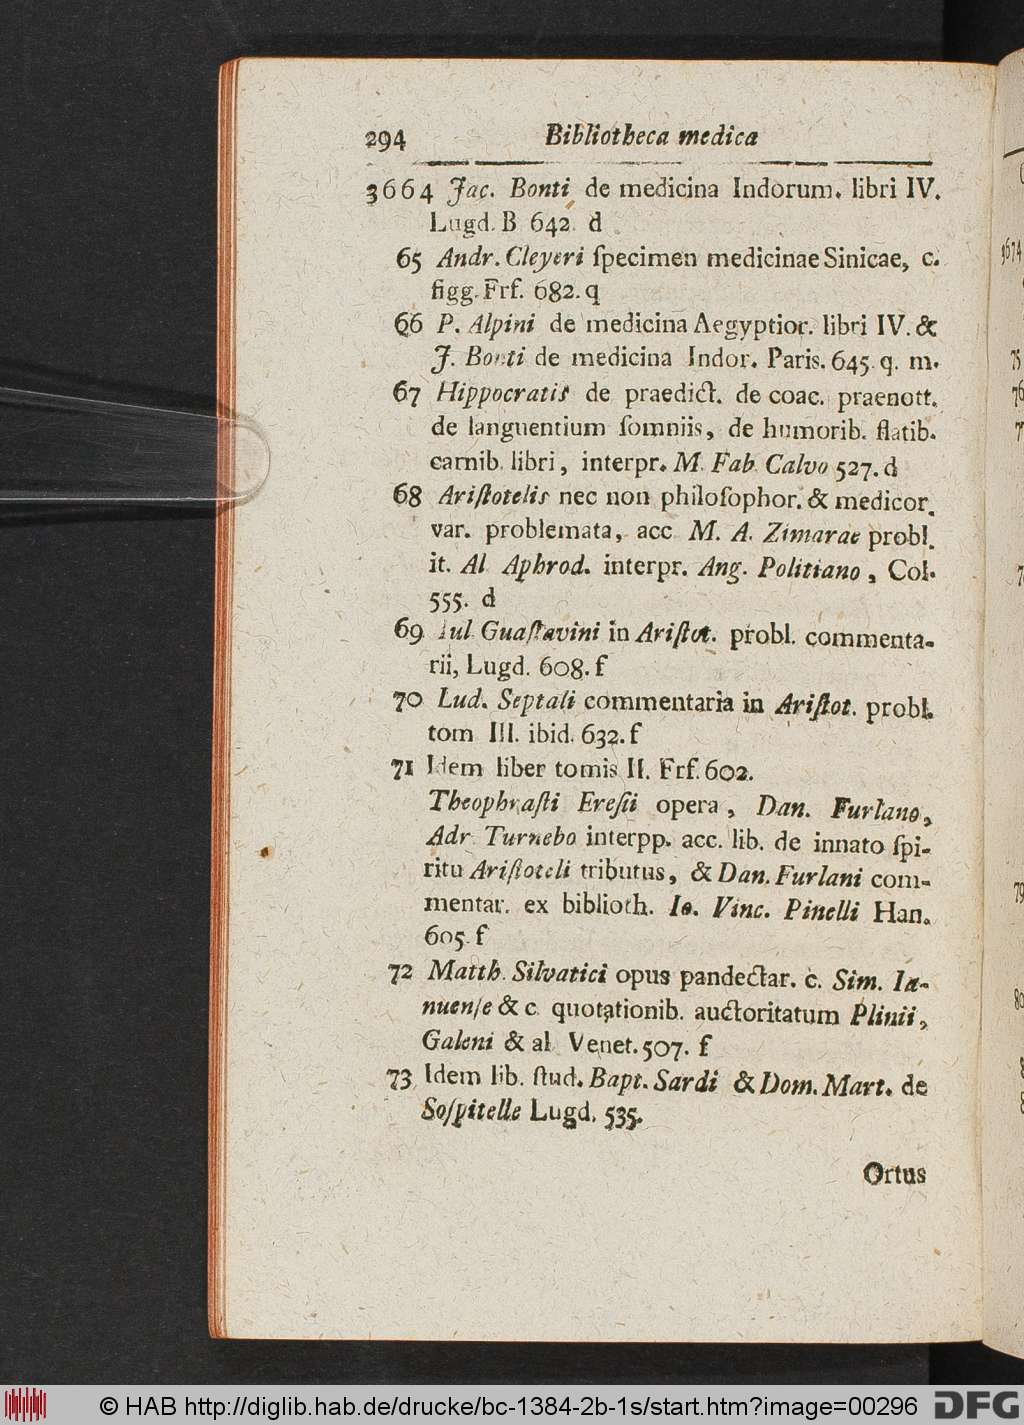 294 Bibliotheca medica
3664 Jac. Bonti de medicina Indorum. libri IV.
Lugd. B 642. d
65 Andr. Cleyeri ſpecimen medicinae Sinicae, c.
figg. Frf. 682. q
66 P. Alpini de medicina Aegyptior. libri IV. &
J. Bonti de medicina Indor. Paris. 645. q. m.
67 Hippocratis de praedict. de coac. praenott.
de languentium ſomniis, de humorib. flatib.
carnib. libri, interpr. M. Fab. Calvo 527. d
68 Ariſtotelis nec non philoſophor. & medicor.
var. problemata, acc M. A. Zimarae probl.
it. Al Aphrod. interpr. Ang. Politiano, Col.
555. d
69 Iul. Guaſtavini in Ariſtot. probl. commenta-
rii, Lugd. 608. f
70 Lud. Septali commentaria in Ariſtot. probl.
tom III. ibid. 632. f
71 Idem liber tomis II. Frf. 602.
Theophraſti Ereſii opera, Dan. Furlano,
Adr Turnebo interpp. acc. lib. de innato ſpi-
ritu Ariſtoteli tributus, & Dan. Furlani com-
mentar. ex biblioth. Io. Vinc. Pinelli Han.
605. f
72 Matth. Silvatici opus pandectar. c. Sim. Ia-
nuenſe & c. quotationib. auctoritatum Plinii,
Galeni & al Venet. 507. f
73 Idem lib. ſtud. Bapt. Sardi & Dom. Mart. de
Soſpitelle Lugd. 535.
Ortus
3674
75
76
79
© HAB http://diglib.hab.de/drucke/bc-1384-2b-1s/start.htm?image=00296
DFG